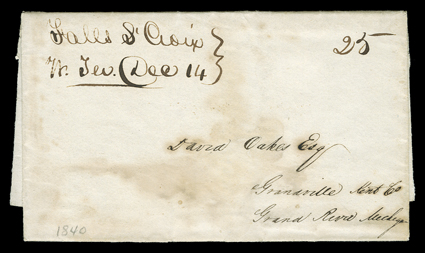 Falls St Croix
W. Ter. Dec 14
25
David Oakes Esq
Grandville Kent Co
Grand River Michn
1840